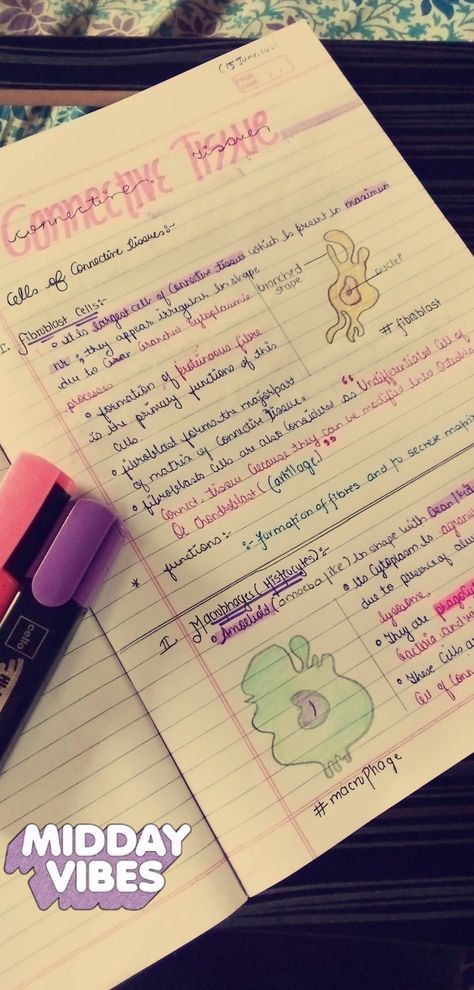 (15 June,
PAGE
DATE
Connective Tissue
Connective Tissue
Cells of Connective tissues:-
I. fibroblast Cells:-
• it is largest cells of Connective tissue which is present in maximum
nr. ; they appear irregular in shape
due to branched Cytoplasmic
processes
• formation of proteinous fibre
is the primary functions of this
cells
• fibroblast forms the major part
of matrix of Connective Tissue.
• fibroblasts Cells are also Considered as "Undifferentiated Cell of
Connect. tissue because they can be modified into Osteoblast
Or Chondroblast (cartilage)"
branched
shape
nuclei
#fibroblast
* functions:- :- formation of fibres and to secrete matrix
II. Macrophages (Histeocytes):-
• Amoeboid (amoeba like) in shape with
• Its Cytoplasm is
due to presence of
lysosome.
• They are
Bacteria and
• These Cells a
Cell of Conn
#macrophage
cello
MIDDAY
VIBES